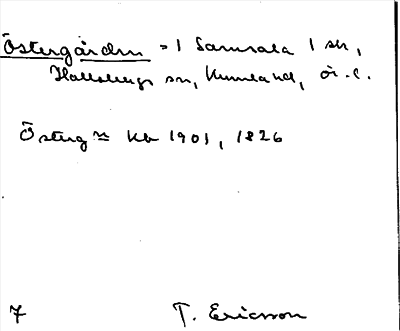 Östergården = 1 Samsala 1 sk,
Hallsbergs sn, Kumla hd, ör. l.
Österg≈ Kb 1901, 1826
7 T. Ericsson